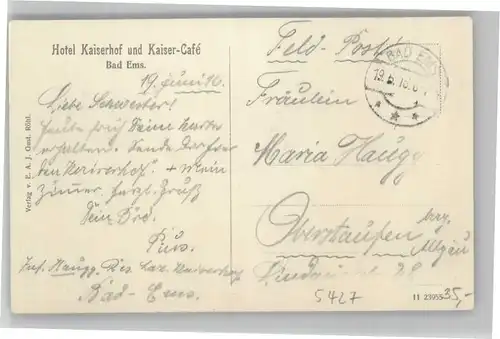 Hotel Kaiserhof und Kaiser-Café
Bad Ems.
19. Juni 16.
Liebe Schwester!
Heute früh Deine Karte
erhalten. Sende Dir hier
den "Kaiserhof" + mein
Zimmer. Herzl. Gruß
Dein Brd.
Pius.
Inf. Haugg. Res. Laz. Kaiserhof
Bad-Ems.
Verlag v. E. A. J. Gust. Rühl.
Feld-Post
BAD EMS
19.6.16.
Fräulein
Maria Haugg
Oberstaufen
bayr.
Allgäu
5427
11 23955
35,-